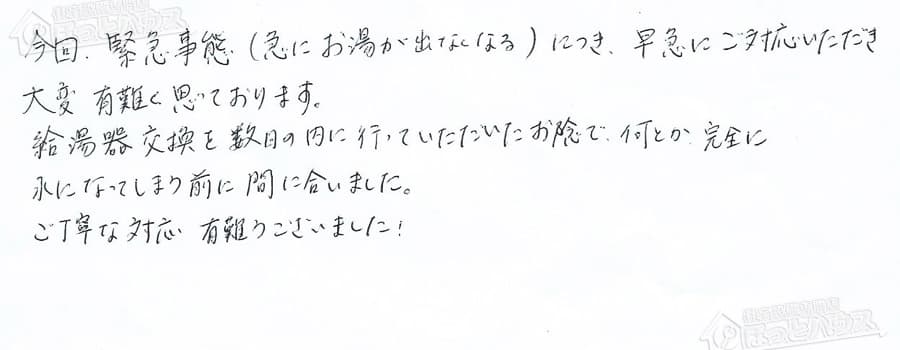 今回、緊急事態(急にお湯が出なくなる)につき、早急にご対応いただき
大変 有難く思っております。
給湯器交換を数日の内に行っていただいたお陰で、何とか完全に
水になってしまう前に間に合いました。
ご丁寧な対応 有難うございました!
住宅設備専門店
ほっとハウス